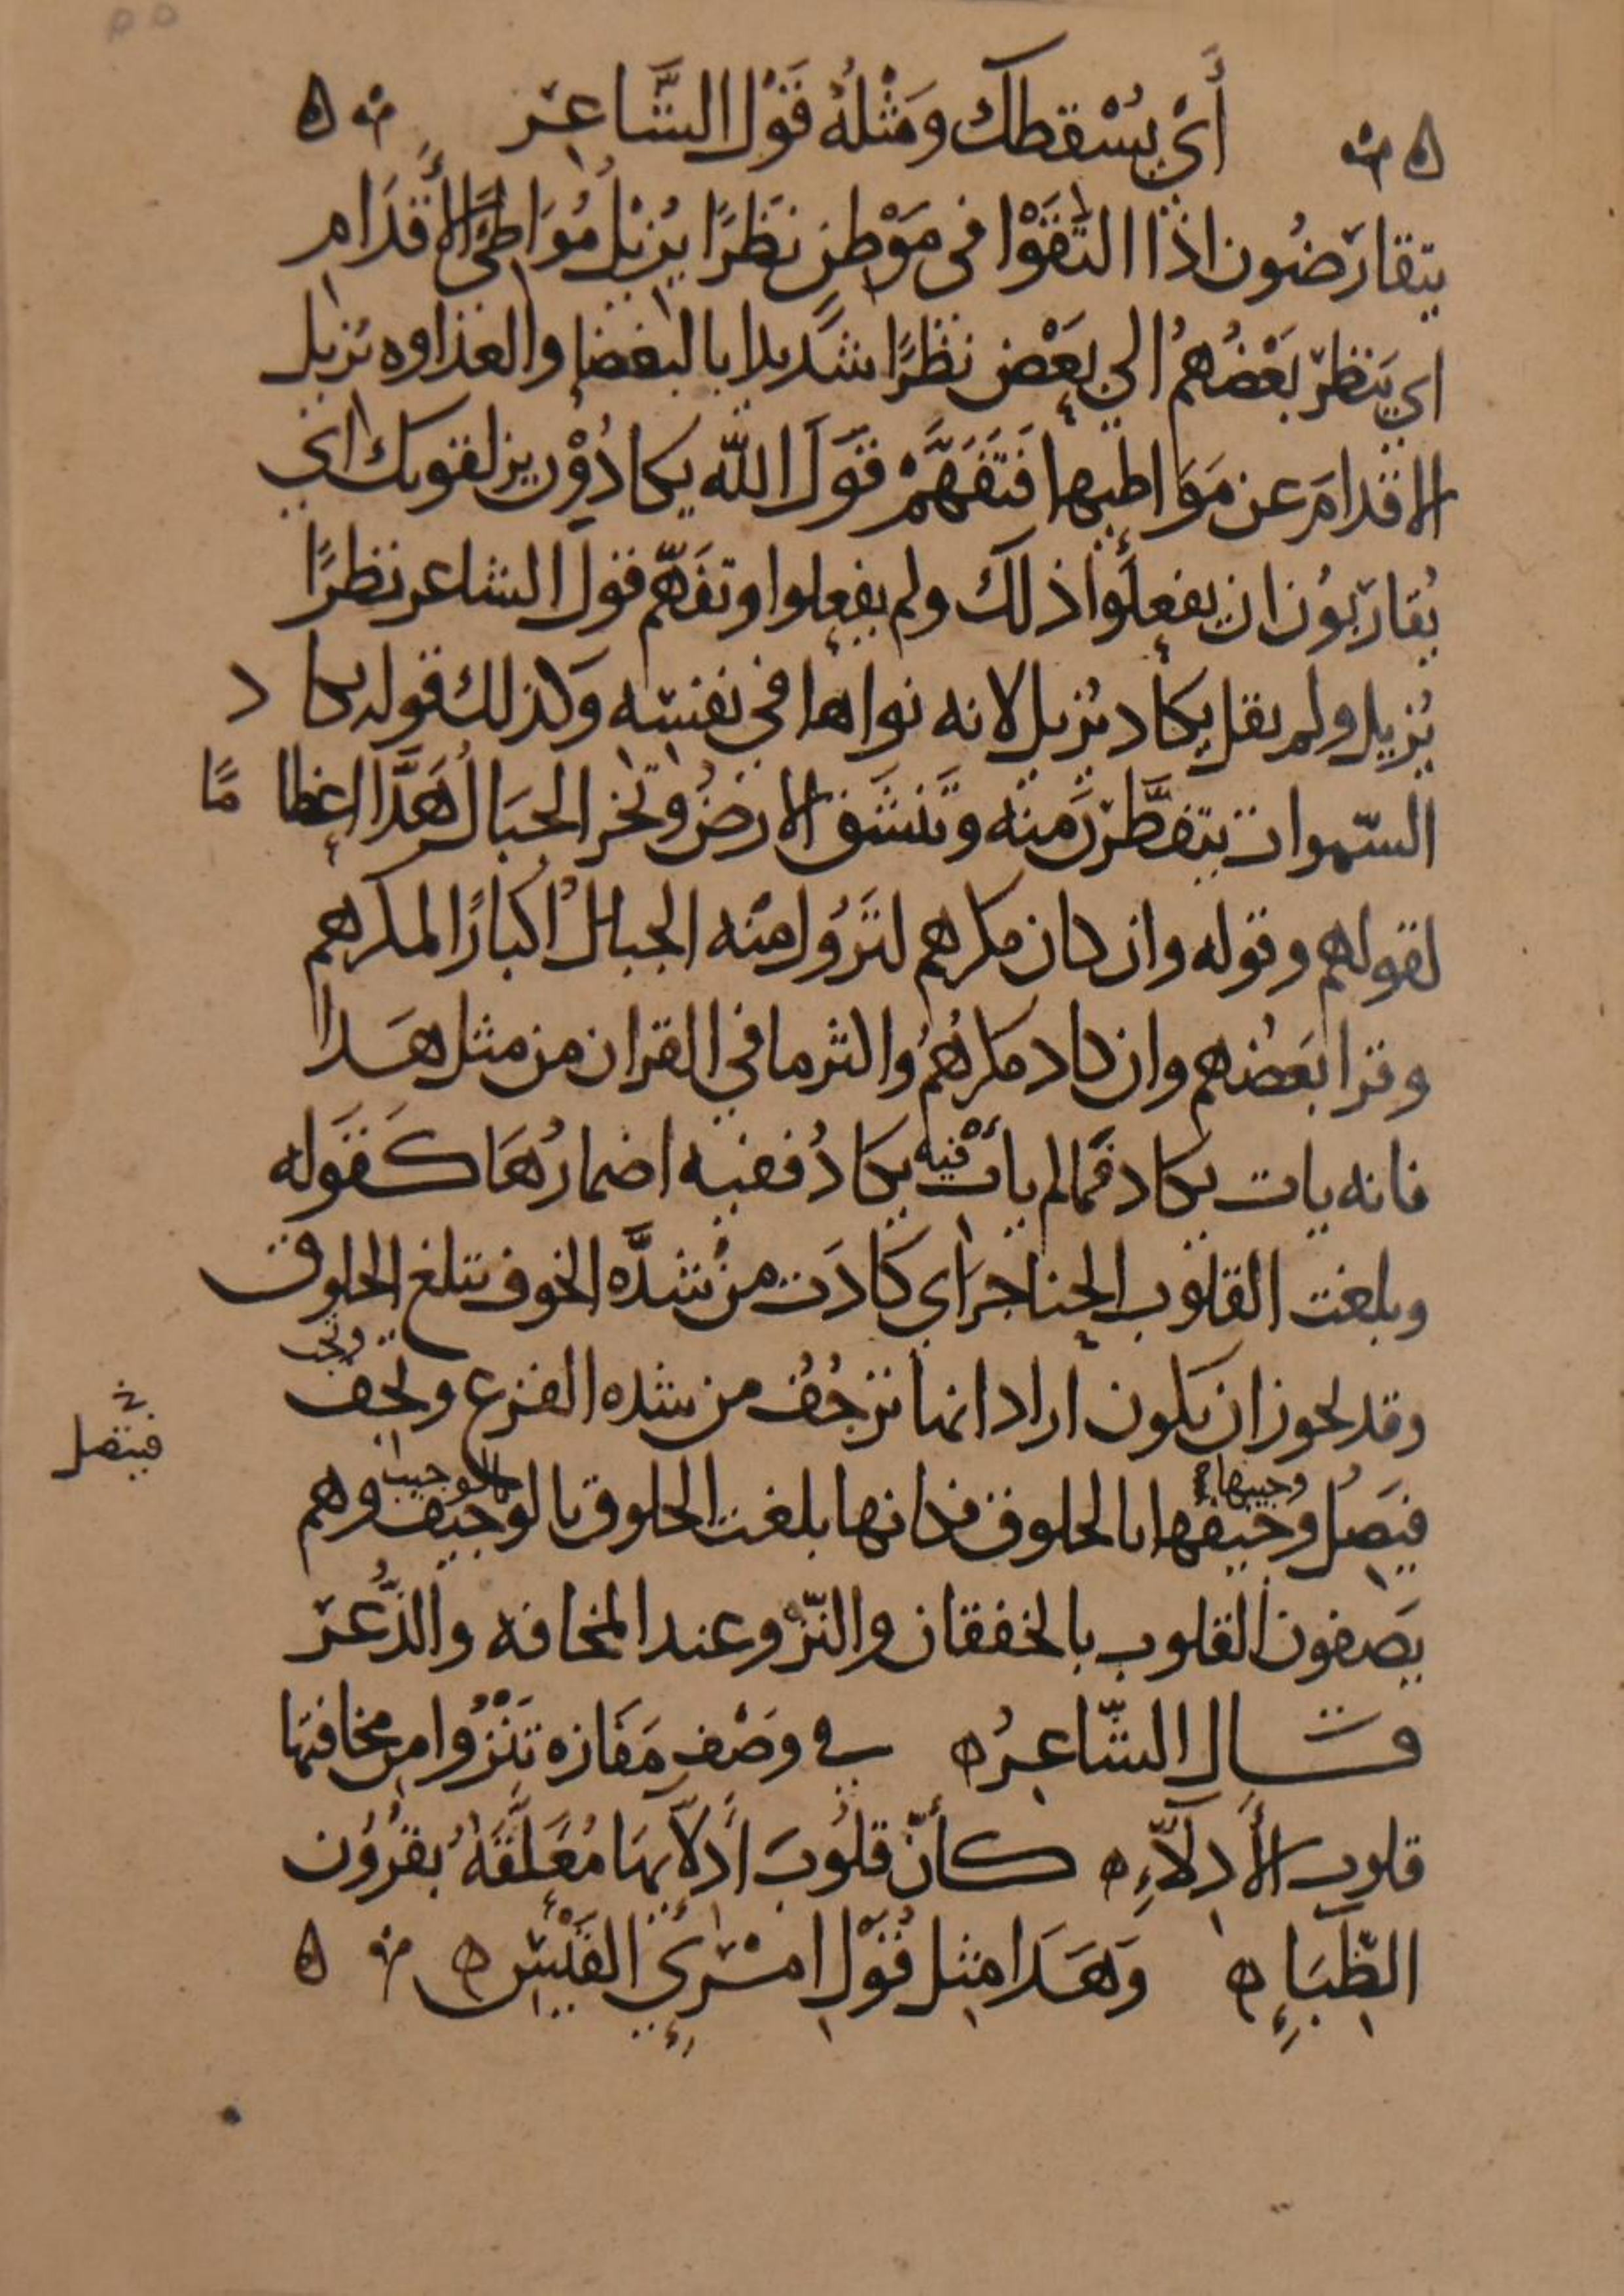 أَيْ يُسْقطك ومثْلُهُ قَوْل الشَّاعِر
يتقارضُون اذا التَقَوْا في مَوْطِنٍ نظَرًا يُزيْلُ مُوَاطِئَ الأَقدَامِ
اي يَنظر بَعْضُهُمُ الي بَعْضٍ نظَرًا شَديدا بالبغضا والعداوه تزيل
الاقدامَ عن مَوَاطيها فَتَفَهَّمْ قَوَل الله يكادُوْن يزلقونك اي
يُقاربُون ان يفعلُوا ذلك ولم يفعلوا وتفَهَّم قول الشاعر نظرًا
يُزيل ولم يقل يكاد يُزيل لانه نواها في نفسِه وكذلك قوله يكاد
السّموات يتفطَّرْنَ منه وتَنشَق الارضُ وتخر الجبَالُ هَدَّا اعظاما
لقولهم وقوله وان كان مكرهم لتَزُولُ منه الجبالُ اكبارًا لمكرهم
وقرا بَعضُهم وان كاد مكرهُمُ واكثر ما في القران من مثل هَذا
فانه يات بكاد فما لم يأت فيه بكادُ ففيه اضمارُهَا كَقَوله
وبلغت القلوب الحناجر اي كادَت من شدَّه الخوف تبلغ الحلوق
وقد يجوز ان يكون اراد انها تَرْجُفُ من شده الفزع وتجف
وتجب
فيَصِلُ وجيفُها بالحلوق فكانها بلغت الحلوق بالوجيف وهم
وجيبها
بالوجيب
فيتصل
يَصفون القلوب بالخفقان والنّزْو عند المخافه والذُّعر
قَال الشّاعِرُ في وصْف مَفَازه تَنْزُوا من مخافتِها
قلوب الأَدِلآّءِ كأنّ قلُوبَ أَدِلاّئها مُعَلَّقَةٌ بقرُون
الظِّبَاءِ وَهَذا مثل قَوْلِ امْرِئِ القَيْسِ